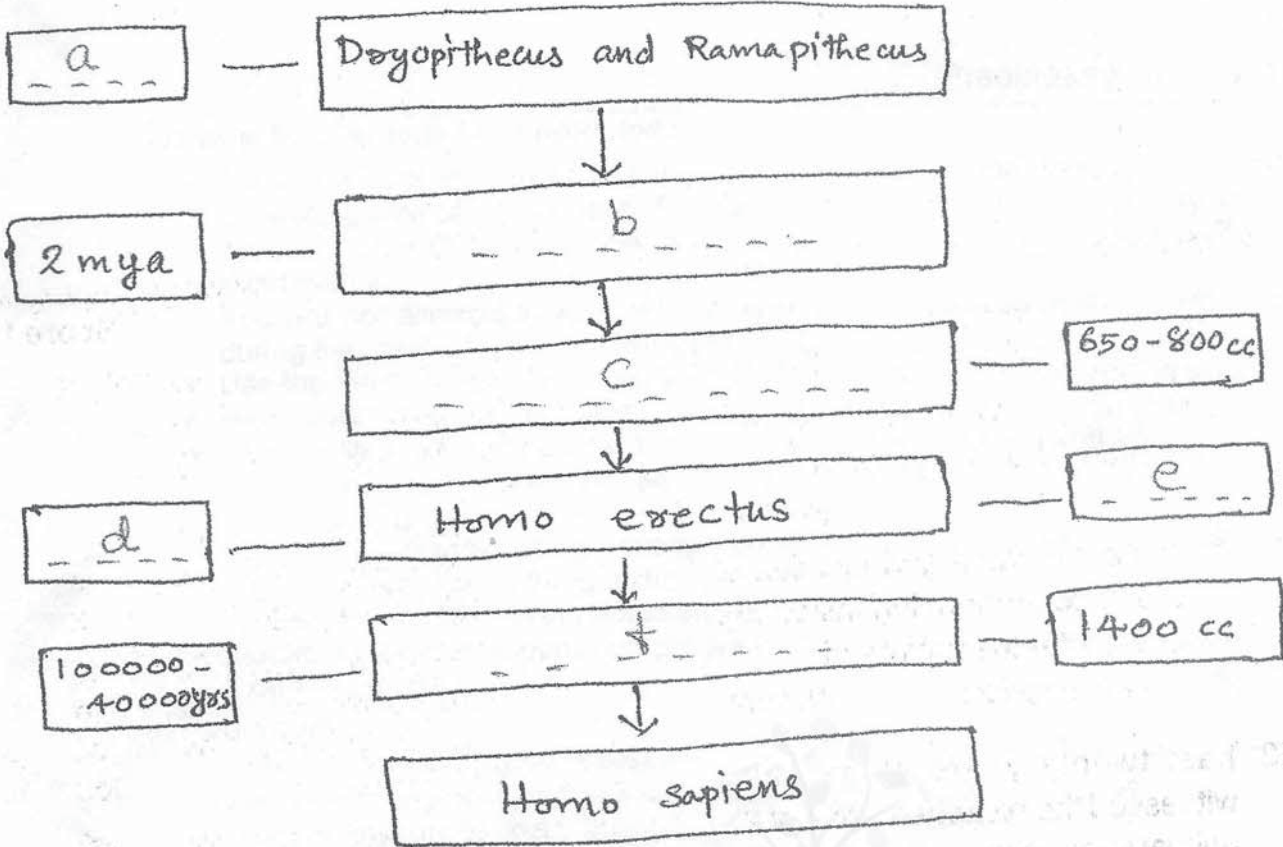 a
Dryopithecus and Ramapithecus
2 mya
b
c
650-800cc
Homo erectus
e
d
f
1400 cc
100000-
40000yrs
Homo sapiens